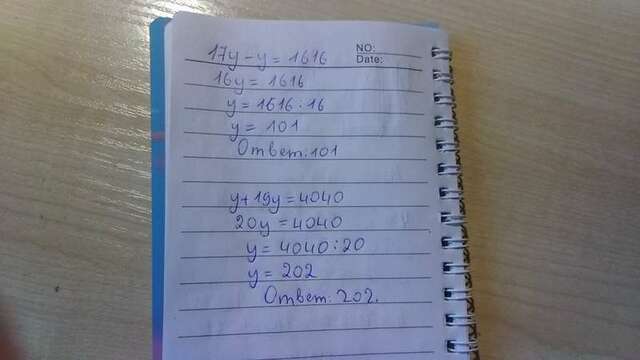 NO:
Date:
17y - y = 1616
16y = 1616
y = 1616 : 16
y = 101
Ответ: 101
y + 19y = 4040
20y = 4040
y = 4040 : 20
y = 202
Ответ: 202.